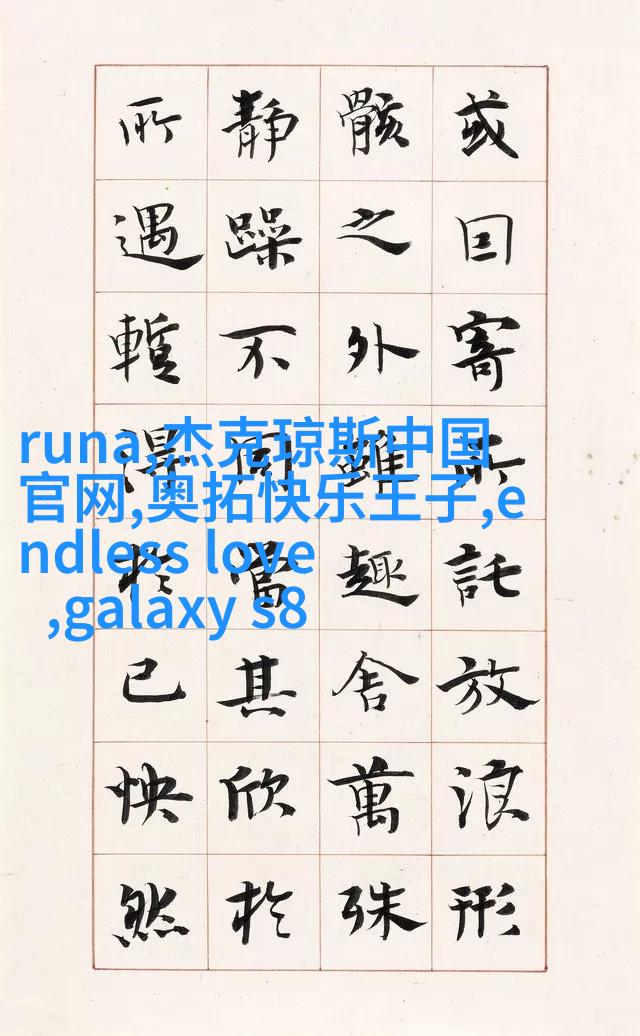 或因寄所託放浪形
骸之外雖趣舍萬殊
靜躁不同當其欣於
所遇暫得於己怏然
runa,杰克琼斯中国
官网,奥拓快乐王子,e
ndless love
,galaxy s8